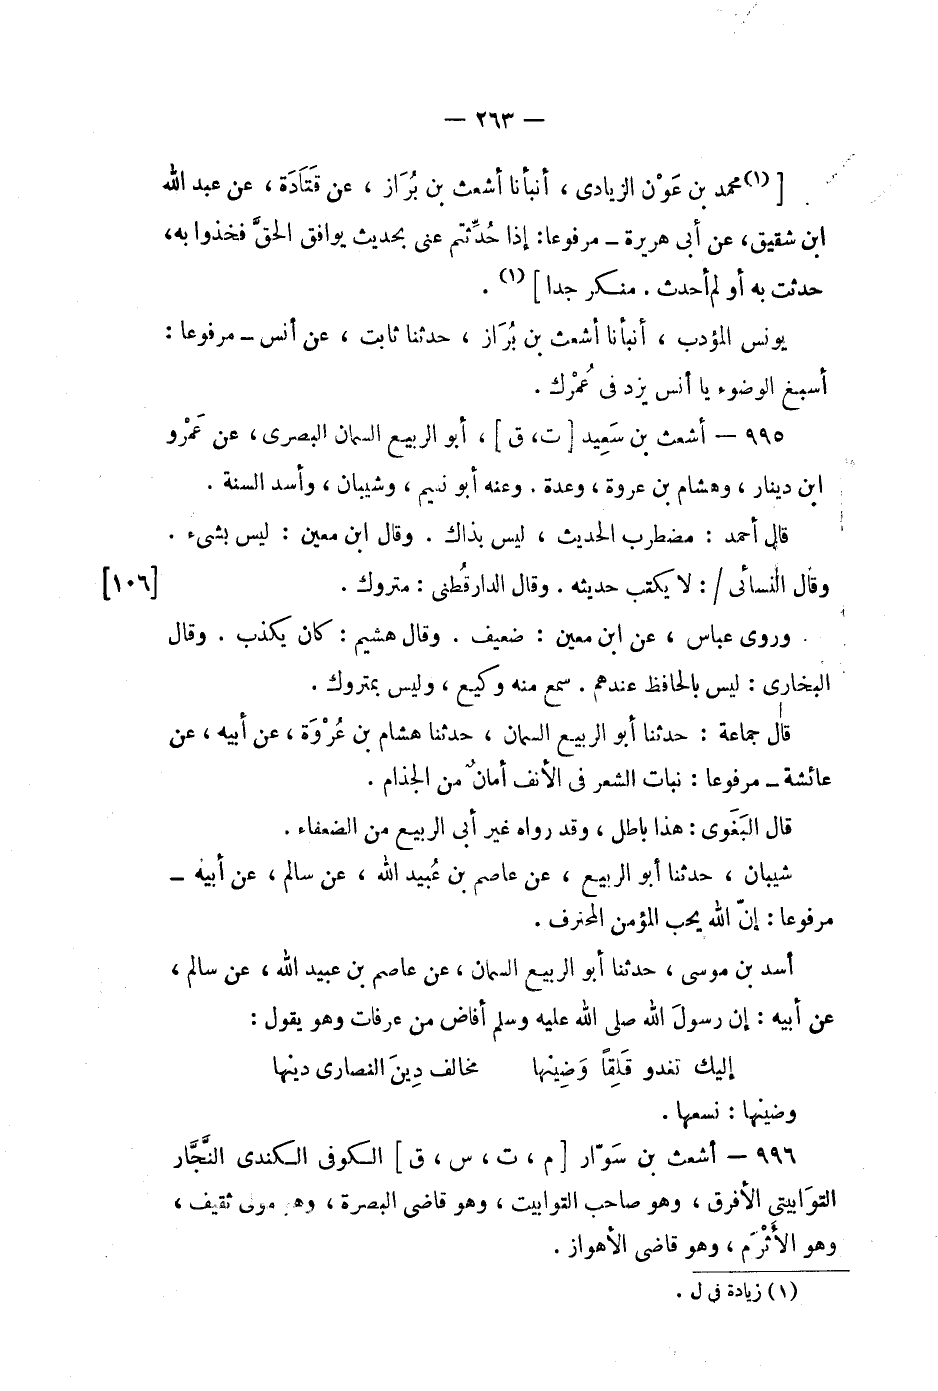 — ٢٦٣ —
[ (١)محمد بن عَوْن الزيادى ، أنبأنا أشعث بن بُرَاز ، عن قَتَادَة ، عن عبد الله
ابن شقيق، عن أبى هريرة – مرفوعا: إذا حُدِّثتم عنى بحديث يوافق الحقَّ فخذوا به،
حدثت به أو لم أحدث . منكر جدا ] (١) .
يونس المؤدب ، أنبأنا أشعث بن بُرَاز ، حدثنا ثابت ، عن أنس – مرفوعا :
أسبغ الوضوء يا أنس يزد فى عُمْرك .
٩٩٥ — أشعث بن سَعِيد [ ت، ق ] ، أبو الربيع السمان البصرى، عن عَمْرو
ابن دينار ، وهشام بن عروة ، وعدة . وعنه أبو نعيم ، وشيبان ، وأسد السنة .
قال أحمد : مضطرب الحديث ، ليس بذاك . وقال ابن معين : ليس بشىء .
وقال النسائى / : لا يكتب حديثه . وقال الدارقُطنى : متروك . [١٠٦]
وروى عباس ، عن ابن معين : ضعيف . وقال هشيم : كان يكذب . وقال
البخارى : ليس بالحافظ عندهم . سمع منه وكيع ، وليس بمتروك .
قال جماعة : حدثنا أبو الربيع السمان ، حدثنا هشام بن عُرْوَة ، عن أبيه ، عن
عائشة – مرفوعا : نبات الشعر فى الأنف أمانٌ من الجذام .
قال البَغَوى : هذا باطل ، وقد رواه غير أبى الربيع من الضعفاء .
شيبان ، حدثنا أبو الربيع ، عن عاصم بن عُبيد الله ، عن سالم ، عن أبيه –
مرفوعا : إنّ الله يحب المؤمن المحترف .
أسد بن موسى ، حدثنا أبو الربيع السمان ، عن عاصم بن عبيد الله ، عن سالم ،
عن أبيه : إن رسولَ الله صلى الله عليه وسلم أفاض من عرفات وهو يقول :
إليك تغدو قَلِقاً وَضِينها مخالف دِينَ النصارى دينها
وضينها : نسعها .
٩٩٦ — أشعث بن سَوّار [ م ، ت ، س ، ق ] الكوفى الكندى النَّجَّار
التوَابيتى الأفرق ، وهو صاحب التوابيت ، وهو قاضى البصرة ، وهو مولى ثقيف ،
وهو الأَثْرَم ، وهو قاضى الأهواز .
(١) زيادة فى ل .